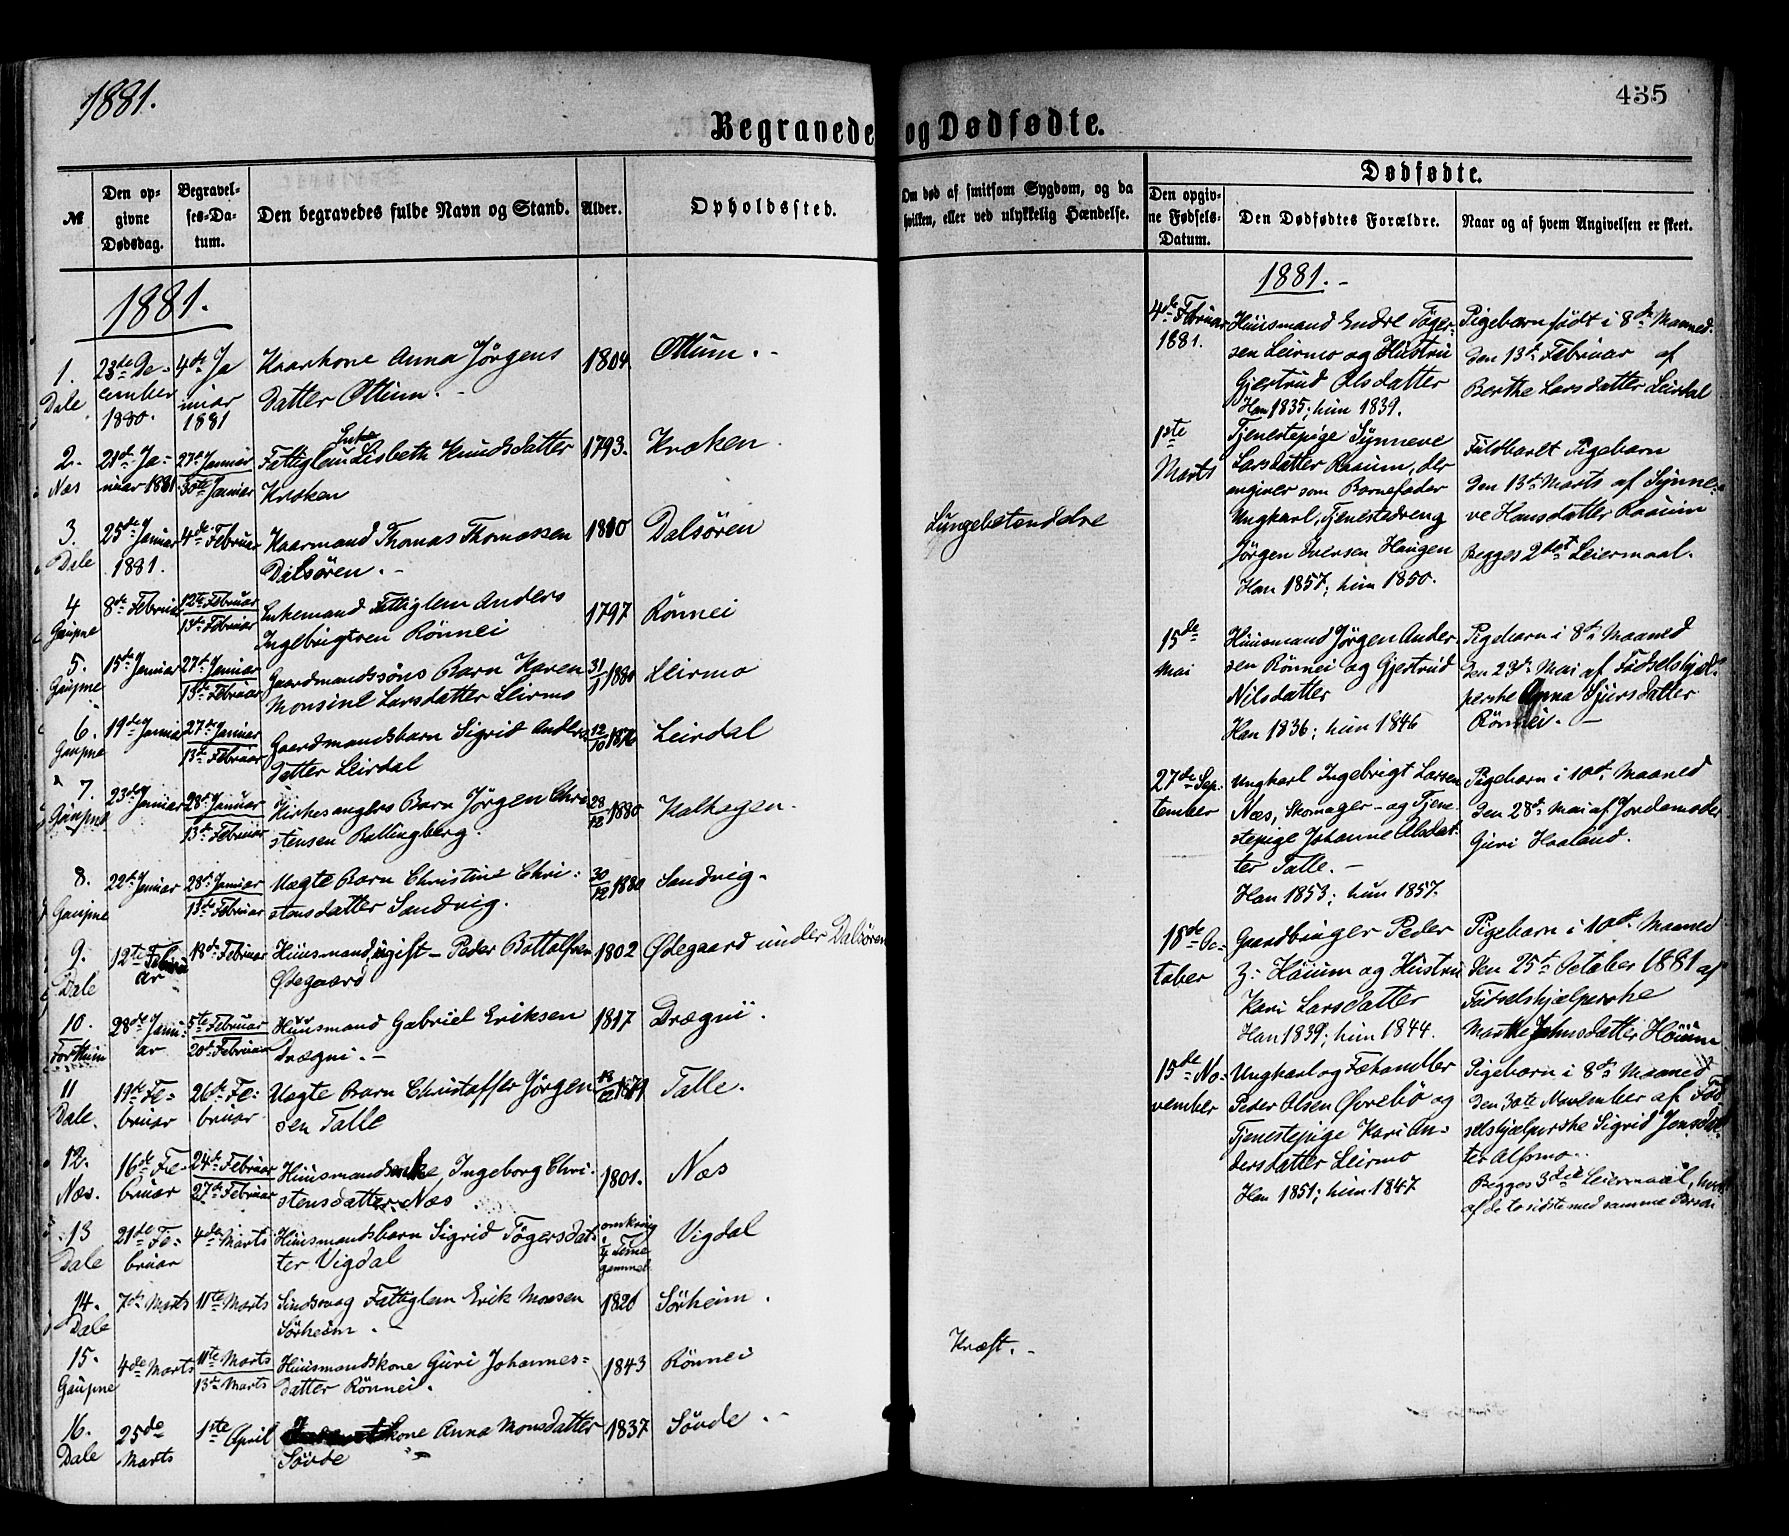 1881.
435
Begravede og Dødfødte.
№
Den opgivne Dødsdag.
Begravelses-Datum.
Den begravedes fulde Navn og Stand.
Alder.
Opholdssted.
Om død af smitsom Sygdom, og da hvilken, eller ved ulykkelig Hændelse.
Dødfødte.
Den opgivne Fødsels-Datum.
Den Dødfødtes Forældre.
Naar og af hvem Angivelsen er skeet.
1881.
1. Dale
23de December 1880.
4de Januar 1881
Kaarkone Anna Jørgens
Datter Ottum.
1804
Ottum.
2. Næs
21de Januar 1881
27de Januar
30te Januar
Fattiglem Enke Lisbeth Knudsdatter
Kroken
1793.
Kroken
3. Dale
25de Januar 1881.
4de Februar
Kaarmand Thomas Thomassen
Dalsøren.
1800
Dalsøren
4 Gaupne
8de Februar
12te Februar
13de Februar
Enkemand Fattiglem Anders
Ingebrigtsen Rønnei
1797
Rønnei
5. Gaupne
15de Januar
27de Januar
13de Februar
Gaardmandssøns Barn Karen
Monsine Larsdatter Leirmo
31/1 1880
Leirmo
6. Gaupne
19de Januar
27de Januar
13de Februar
Gaardmandsbarn Sigrid Anders
Datter Leirdal
12/10 1876
Leirdal
7. Gaupne
23de Januar
28de Januar
13de Februar
Kirkesangers Barn Jørgen Christensen
28/12 1880
Kalhagen.
8. Gaupne
22de Januar
28de Januar
13de Februar
Uægte Barn Christine Christensdatter Sandvig.
30/12 1880
Sandvig.
9. Dale
12te Februar
18de Februar
Huusmand, ugift - Peder Bottolfsen
Ødegaard
1802
Ødegaard under Dalsøren
10. Forthun
28de Januar
5te Februar
20de Februar
Huusmand Gabriel Eriksen
Drægni.
1817
Drægni.
11 Dale.
19de Februar
26de Februar
Uægte Barn Christoffer Jørgensen Talle
Talle.
12. Næs.
16de Februar
24de Februar
27de Februar
Ingeborg Christensdatter Næs
1801.
Næs
13 Dale
21de Februar
4de Marts
Huusmandsbarn Sigrid Tøgersdatter Vigdal
omkring
Time
gammel
Vigdal
14. Dale
7de Marts
11te Marts
Sindssvag Fattiglem Erik Monsen
Sørheim.
1820
Sørheim.
15. Gaupne
4de Marts
11te Marts
13de Marts
Huusmandskone Guri Johannesdatter Rønnei.
1843
Rønnei
16. Dale
25de Marts
1ste April
kone Anna Monsdatter
Søvde
1837
Søvde.
Lungebetændelse
Kræft.
1881.
4de Februar 1881.
Huusmand Endre Tøgersen Leirmo og Hustru
Gjertrud Olsdatter
Han 1835; hun 1839.
Pigebarn født i 8de Maaned.
den 13de Februar af
Berthe Larsdatter Leirdal
1ste Marts
Tjenestepige Synneve
Larsdatter Raaum, der
angiver som Barnefader
Ungkarl, Tjenestedreng
Jørgen Iversen Haugen
Han 1857; hun 1850.
Fuldbaaret Pigebarn
den 13de Marts af Synneve Hansdatter Raaum
Begges 2det Leiermaal.
15de Mai
Huusmand Jørgen Andersen Rønnei og Gjertrud
Nilsdatter
Han 1836; hun 1846
Pigebarn i 8de Maaned
den 23de Mai af Fødselshjælperske Anna Sjursdatter
Rønnei.
27de September
Ungkarl Ingebrigt Larsen
Næs, Skomager - og Tjenestepige Johanne Olsdatter Talle.
Han 1853; hun 1857.
Pigebarn i 10de Maaned
den 28de Mai af Jordemoder
Guri Haaland.
18de October
Gaardbruger Peder
Høium og Hustru
Kari Larsdatter
Han 1839; hun 1844.
Pigebarn i 10de Maaned
den 25de October 1881 af
Fødselshjælperske
Marthe Johnsdatter Høium
15de November
Ungkarl og Fæhandler
Peder Olsen Øvrebø og
Tjenestepige Kari Andersdatter Leirmo
Han 1851; hun 1847
Pigebarn i 8de Maaned
den 30te November af Fødselshjælperske Sigrid Jensdatter Alsmo.
Begges 3die Leiermaal, hvoraf de to sidste med samme Person